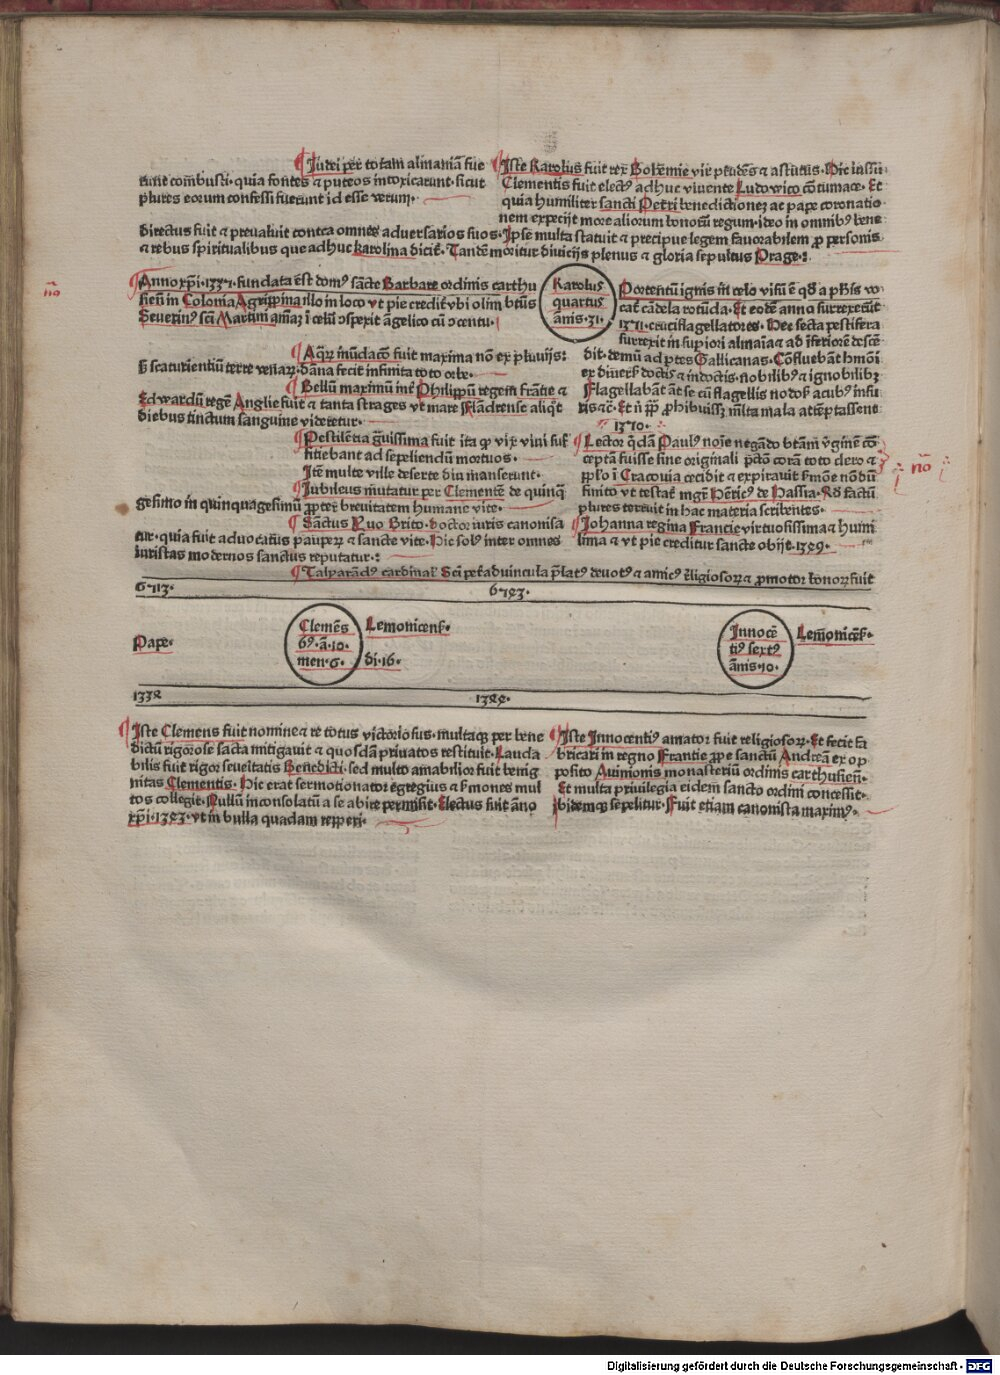 ¶ Iudei per totam almaniã fue
runt combusti· quia fontes ⁊ puteos intoxicarunt· sicut
plures eorum confessi fuerunt id esse verum·
¶ Iste Karolus fuit rex Bohemie vir prudẽs ⁊ astutus· Hic iussu
Clementis fuit electꝰ adhuc viuente Ludowico cõtumace· Et
quia humiliter sancti Petri benedictionez ac pape coronatio
nem expecijt more aliorum bonorũ regum· ideo in omnibꝰ bene
directus fuit ⁊ preualuit contra omnes aduersarios suos· Ipse multa statuit ⁊ precipue legem fauorabilem ꝓ personis
⁊ rebus spiritualibus que adhuc karolina dicit· Tandẽ moritur diuicijs plenus ⁊ gloria sepultus Prage·:
¶ Anno xpi· 1331· fundata est domꝰ sãcte Barbare ordinis carthu
siẽn in Colonia Agrippina illo in loco vt pie credit vbi olim btũs
Seuerinꝰ scĩ Martini aĩaz ĩ celũ ɔspexit ãgelico cũ ɔcentu·
Karolus
quartus
ãnis·31·
Portentũ ignis ĩ celo visũ ẽ
cãt cãdela rotũda· Et eodẽ anno surrexerũt
cruciflagellatores· Hec secta pestifera
surrexit in supiori almaĩa ⁊ ad ĩferiorẽ descẽ
dit· demũ ad ptes Gallicanas· Cõfluebãt
ex diuersꝭ doctis ⁊ indoctis· nobilibꝰ ⁊ ignobilibꝫ
Flagellabãt ãt se cũ flagellis nodosꝭ acubꝰ infi
xis ⁊c̃· Et
mlta mala attẽptassent
¶ Aqrz inũdacõ fuit maxima nõ ex pluuijs:
scaturientiũ terre venarz· dãna fecit infinita toto orbe·
¶ Bellũ maximũ int Philippũ regem frãtie ⁊
Edwardũ regẽ Anglie fuit ⁊ tanta strages vt mare Flãdrense aliqt
diebus tinctum sanguine videretur·
1310·
¶ Pestilẽtia grauissima fuit ita ꝙ vix viui suf
ficiebant ad sepeliendũ mortuos·
Itẽ multe ville deserte diu manserunt·
¶ Iubileus mutatur per Clementẽ de quinq
gesimo in quinquagesimũ ꝓpter breuitatem humane vite·
¶ Sãctus Ruo Brito· doctor iuris canonisa
tur· quia fuit aduocatus pauperz ⁊ sancte vite· Hic solꝰ inter omnes
iuristas modernos sanctus reputatur·:
¶ Lector qdã Paulꝰ noĩe negãdo btam vginẽ cõ
ceptã fuisse sine originali pctõ corã toto clero ⁊
pplo ĩ Cracouia cecidit ⁊ expirauit sermõe nõdũ
finito vt testat mgr Hẽricꝰ de Hassia· Qd factũ
plures terruit in hac materia scribentes·
¶ Johanna regina Francie virtuosissima ⁊ humi
lima ⁊ vt pie creditur sancte obijt·
¶ Talparãdꝰ cardinal Scĩ petẽ aduincula prelatꝰ deuotꝰ ⁊ amicꝰ religiosorz ⁊ ꝓmotor bonorz fuit
Pape·
Clemẽs
6ꝰ·ã·10·
men·6·
Lemonicenß·
di·16·
Innocẽ
tiꝰ sextꝰ
ãnis·10·
Lemonicẽß·
¶ Iste Clemens fuit nomine ⁊ re totus victoriosus· multaqꝫ per bene
dictũ rigorose facta mitigauit ⁊ quosdã priuatos restituit· Lauda
bilis fuit rigor seueritatis Benedicti· sed multo amabilior fuit benig
nitas Clementis· Hic erat sermotionator egregius ⁊ sermones mul
tos collegit· Nullũ inconsolatũ a se abire permisit· Electus fuit ãno
xpi· vt in bulla quadam repperi·
¶ Iste Innocentiꝰ amator fuit religiosorz· Et fecit fa
bricari in regno Frantie ꝓpe sanctũ Andreã ex op
posito Auinionis monasteriũ ordinis carthusieñ·
Et multa priuilegia eidem sancto ordini concessit·
ibidemqꝫ sepelitur· Fuit etiam canonista maximꝰ·
Digitalisierung gefördert durch die Deutsche Forschungsgemeinschaft - DFG